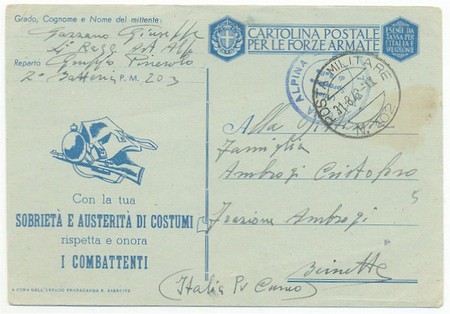 Grado, Cognome e Nome del mittente:
Gazzano Giuseppe
4° Regg. Art. Alp.
Reparto Gruppo Pinerolo
2° Batteria P.M. 203
CARTOLINA POSTALE
PER LE FORZE ARMATE
ESENTE DA
TASSA PER
L'ITALIA E
ALPINA
POSTA MILITARE
N. 102
Alla
Famiglia
Ambrogi Cristoforo
Frazione Ambrogi
Italia Pr Cuneo
Con la tua
SOBRIETÀ E AUSTERITÀ DI COSTUMI
rispetta e onora
I COMBATTENTI
A CURA DELL'UFFICIO PROPAGANDA R. ESERCITO